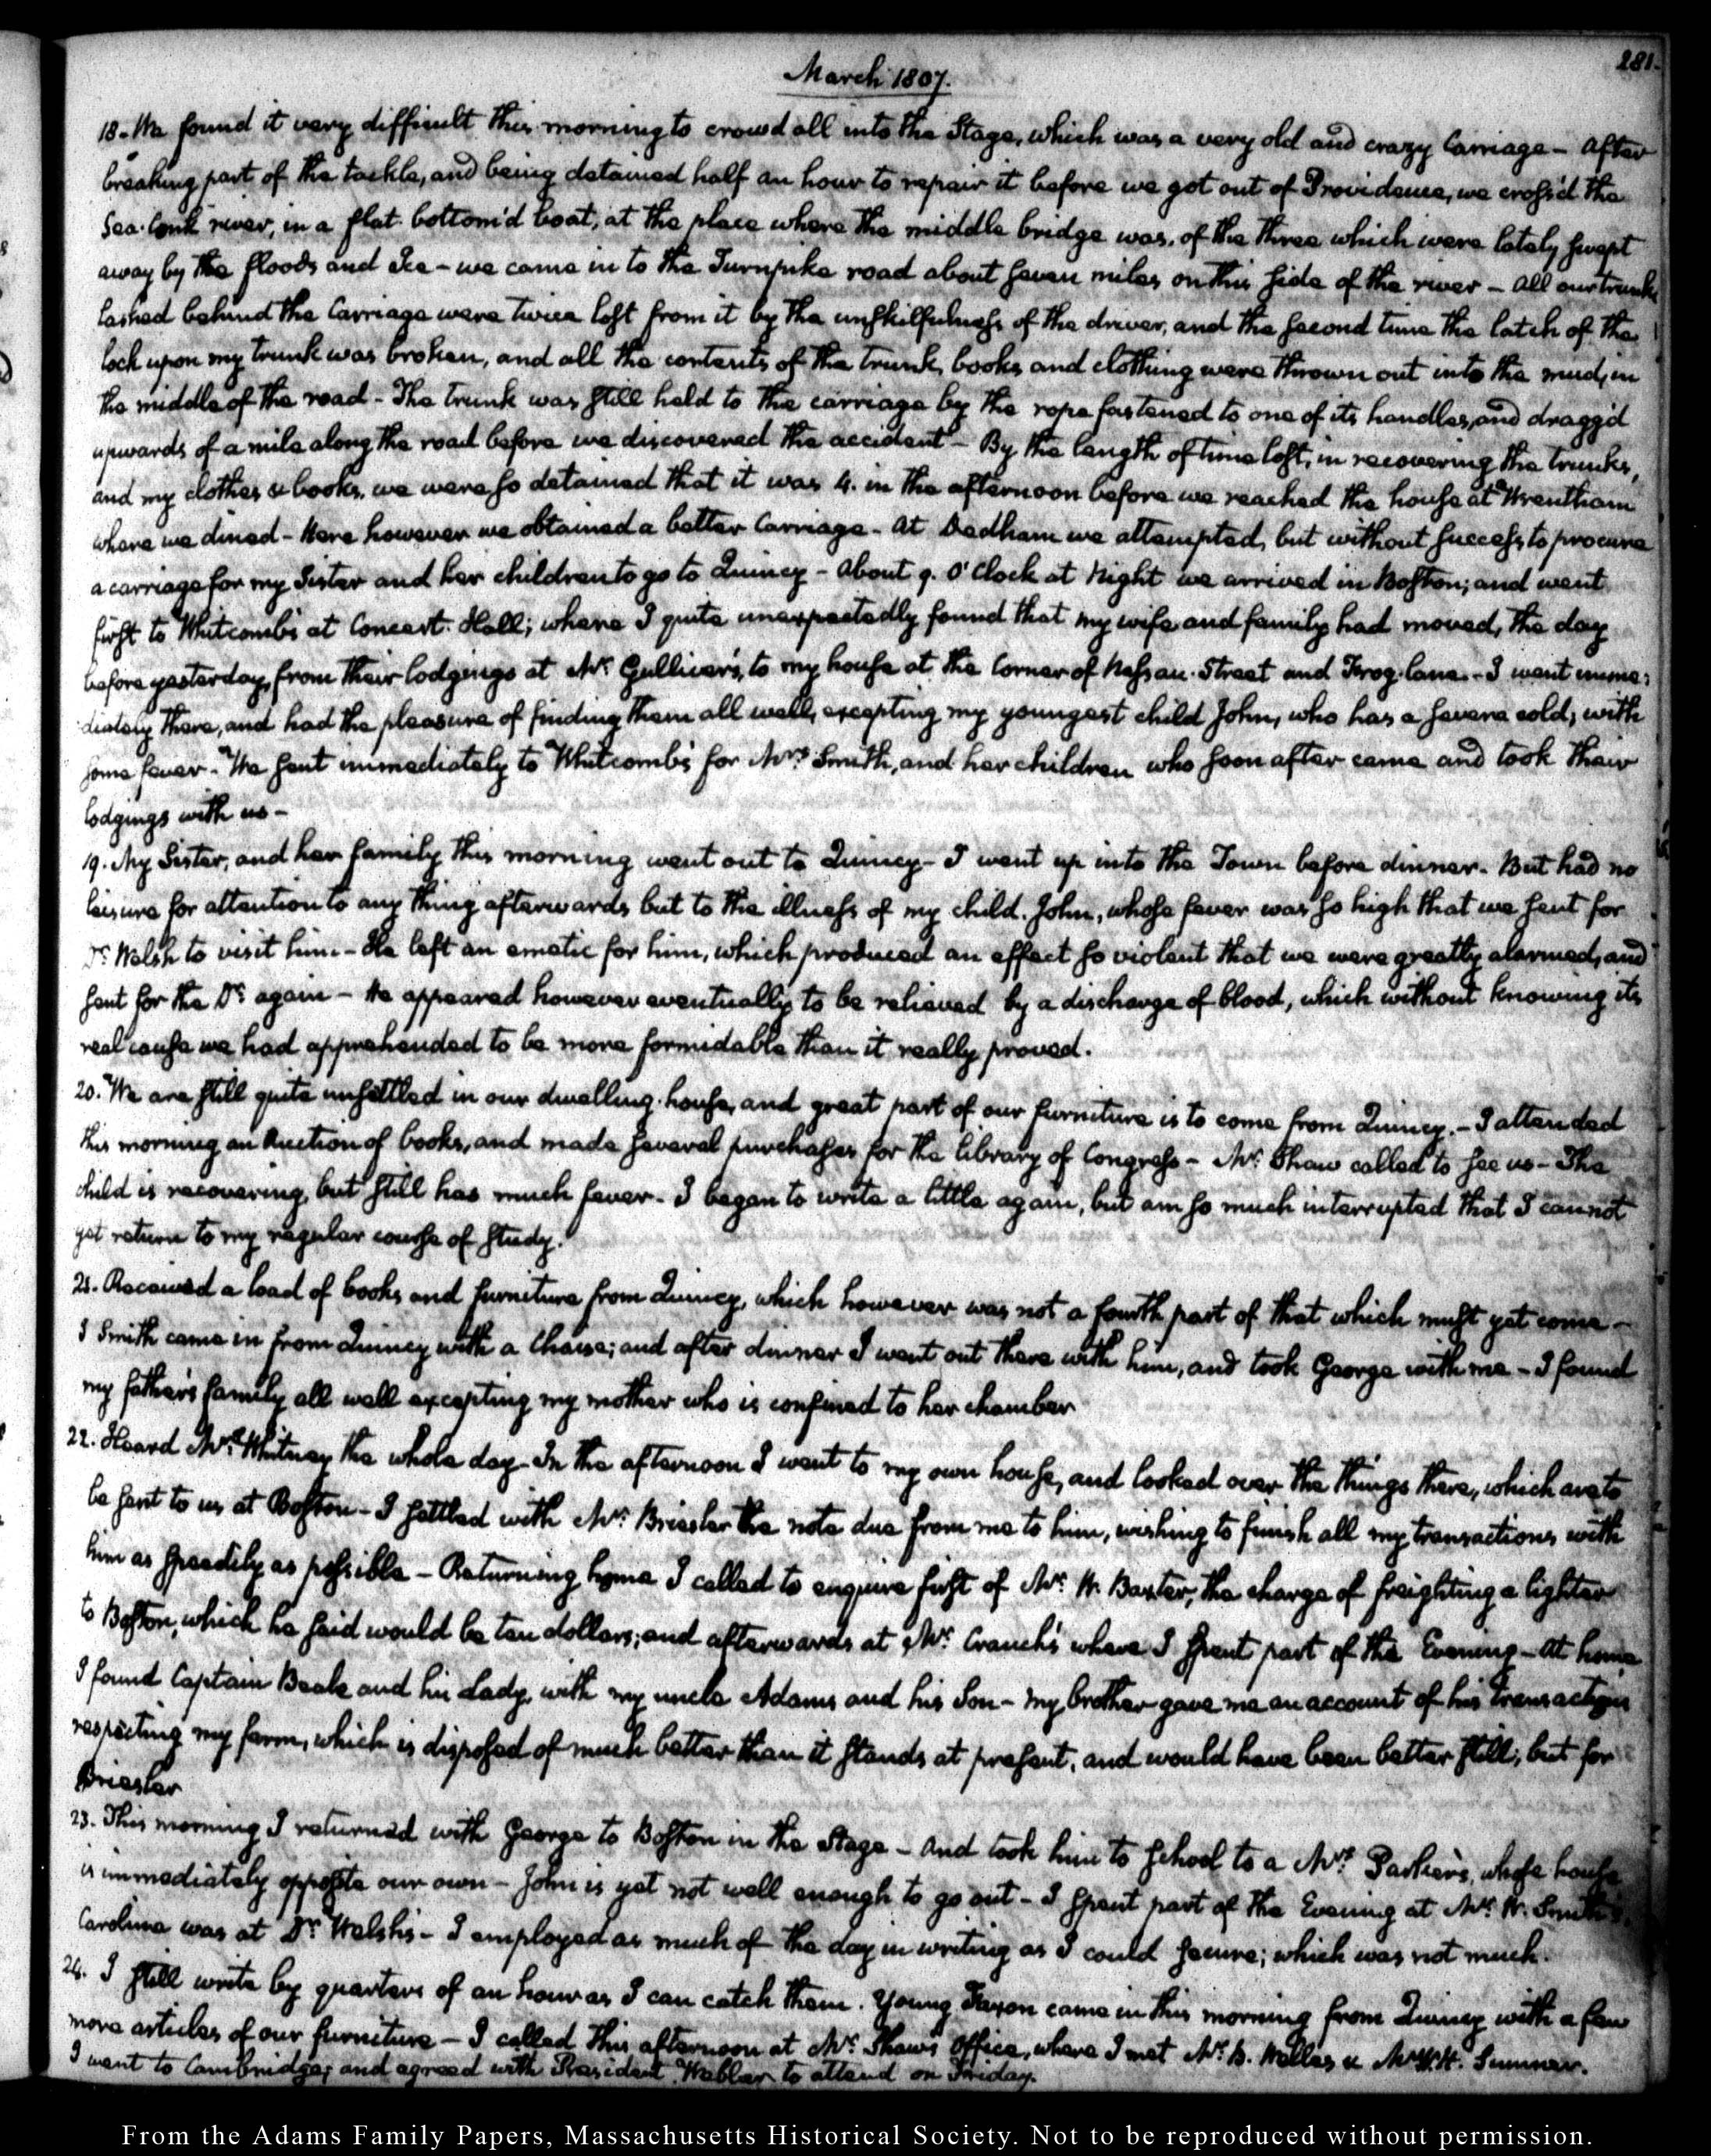 281.
March 1807.
18. We found it very difficult this morning to crowd all into the Stage, which was a very old and crazy Carriage – After
breaking part of the tackle, and being detained half an hour to repair it before we got out of Providence, we cross'd the
Sea-conk river, in a flat-bottom'd boat, at the place where the middle bridge was, of the three which were lately swept
away by the floods and Ice – we came in to the Turnpike road about seven miles on this side of the river – All our trunks
lashed behind the Carriage were twice lost from it by the unskilfulness of the driver, and the second time the latch of the
lock upon my trunk was broken, and all the contents of the trunk, books and clothing were thrown out into the mud, in
the middle of the road – The trunk was still held to the carriage by the rope fastened to one of its handles, and dragg'd
upwards of a mile along the road before we discovered the accident – By the length of time lost, in recovering the trunks,
and my clothes & books, we were so detained that it was 4. in the afternoon before we reached the house at Wrentham
where we dined – Here however we obtained a better Carriage – At Dedham we attempted, but without success to procure
a carriage for my Sister and her children to go to Quincy – About 9. O'Clock at Night we arrived in Boston; and went
first to Whitcomb's at Concert-Hall; where I quite unexpectedly found that my wife and family had moved, the day
before yesterday, from their lodgings at Mr. Gulliver's, to my house at the Corner of Nassau-Street and Frog-lane. – I went imme-
diately there, and had the pleasure of finding them all well, excepting my youngest child John, who has a severe cold, with
some fever – We sent immediately to Whitcomb's for Mrs. Smith, and her children who soon after came and took their
lodgings with us –
19. My Sister, and her family this morning went out to Quincy – I went up into the Town before dinner. But had no
leisure for attention to any thing afterwards but to the illness of my child John, whose fever was so high that we sent for
Dr. Welsh to visit him – He left an emetic for him, which produced an effect so violent that we were greatly alarmed, and
sent for the Dr. again – He appeared however eventually to be relieved by a discharge of blood, which without knowing its
real cause we had apprehended to be more formidable than it really proved.
20. We are still quite unsettled in our dwelling-house, and great part of our furniture is to come from Quincy. – I attended
this morning an Auction of books, and made several purchases for the library of Congress – Mr. Shaw called to see us – The
child is recovering, but still has much fever – I began to write a little again, but am so much interrupted that I cannot
yet return to my regular course of study.
21. Received a load of books and furniture from Quincy, which however was not a fourth part of that which must yet come –
J Smith came in from Quincy with a Chaise; and after dinner I went out there with him, and took George with me – I found
my father's family all well excepting my mother who is confined to her chamber
22. Heard Mr. Whitney the whole day – In the afternoon I went to my own house, and looked over the things there, which are to
be sent to us at Boston – I settled with Mr. Briesler the note due from me to him, wishing to finish all my transactions with
him as speedily as possible – Returning home I called to enquire first of Mr. W. Baxter, the charge of freighting a lighter
to Boston, which he said would be ten dollars; and afterwards at Mr. Cranch's where I spent part of the Evening – At home
I found Captain Beale and his Lady, with my uncle Adams and his Son – My brother gave me an account of his transactions
respecting my farm, which is disposed of much better than it stands at present, and would have been better still, but for
Briesler
23. This morning I returned with George to Boston in the Stage – And took him to school to a Mrs. Parker's, whose house
is immediately opposite our own – John is yet not well enough to go out – I spent part of the Evening at Mr. W. Smith's.
Caroline was at Dr. Welsh's – I employed as much of the day in writing as I could secure; which was not much.
24. I still write by quarters of an hour as I can catch them. Young Faxon came in this morning from Quincy with a few
more articles of our furniture – I called this afternoon at Mr. Shaw's Office, where I met Mr. B. Welles & Mr. W. H. Sumner.
I went to Cambridge; and agreed with President Webber to attend on Friday.
From the Adams Family Papers, Massachusetts Historical Society. Not to be reproduced without permission.